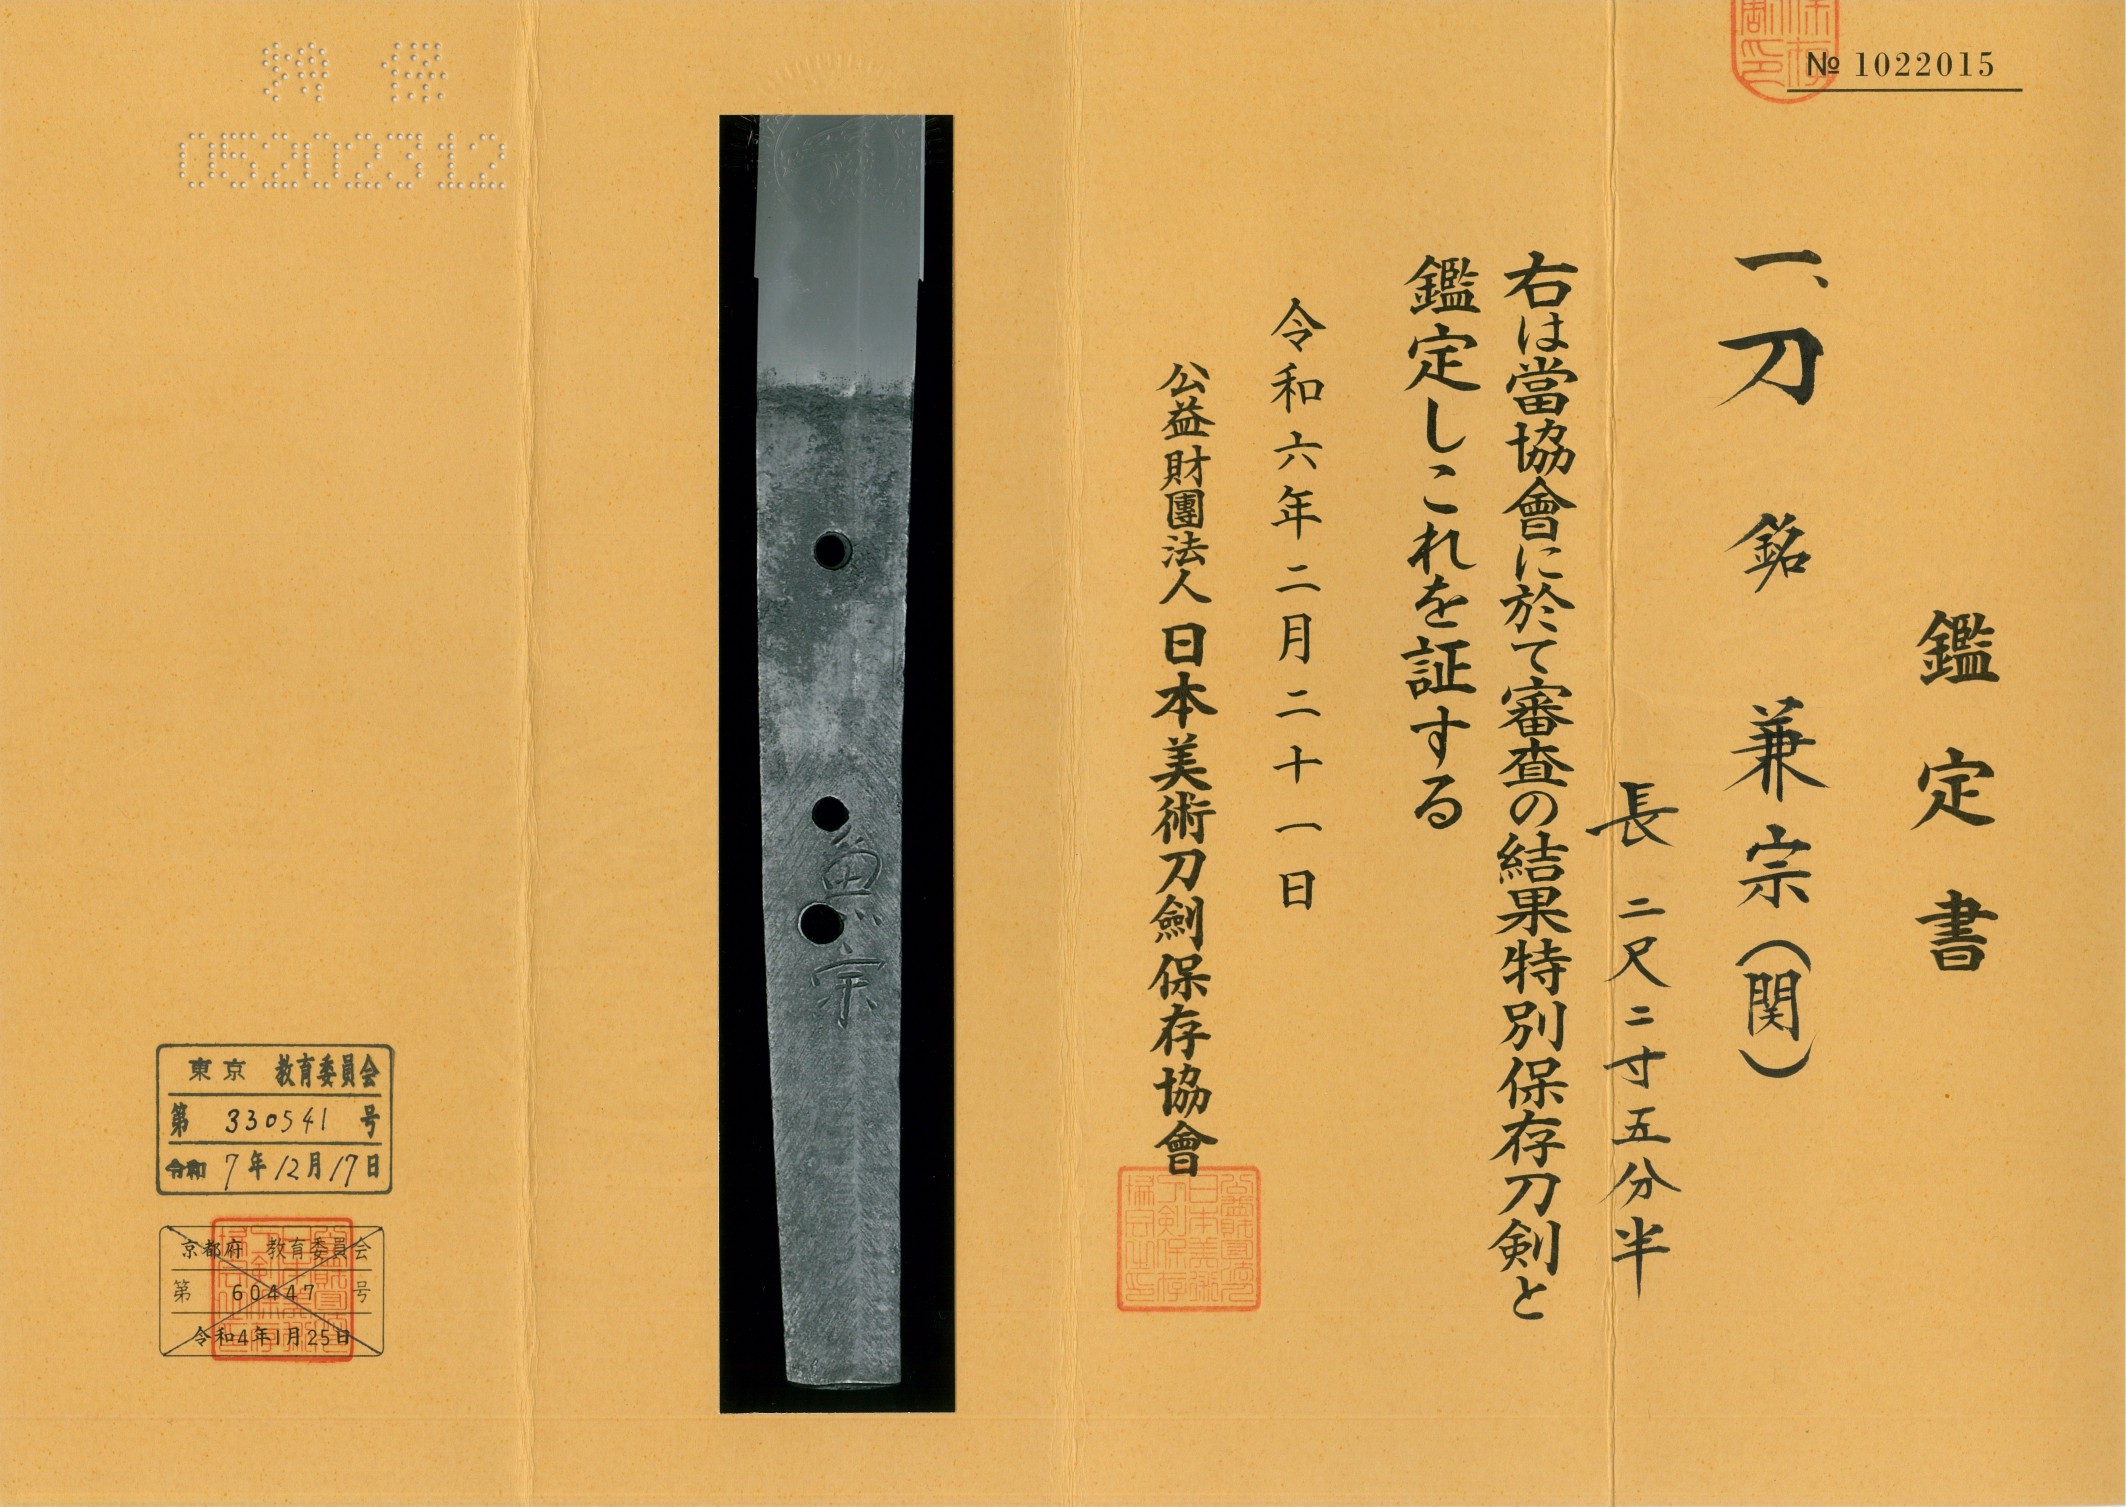 № 1022015
鑑定書
一、刀 銘 兼宗(関)
長 二尺二寸五分半
右は當協會に於て審査の結果特別保存刀剣と
鑑定しこれを証する
令和六年二月二十一日
公益財團法人 日本美術刀劍保存協會
兼宗
05202312
東京 教育委員会
第 330541 号
令和 7年12月17日
京都府 教育委員会
第 60447 号
令和4年1月25日